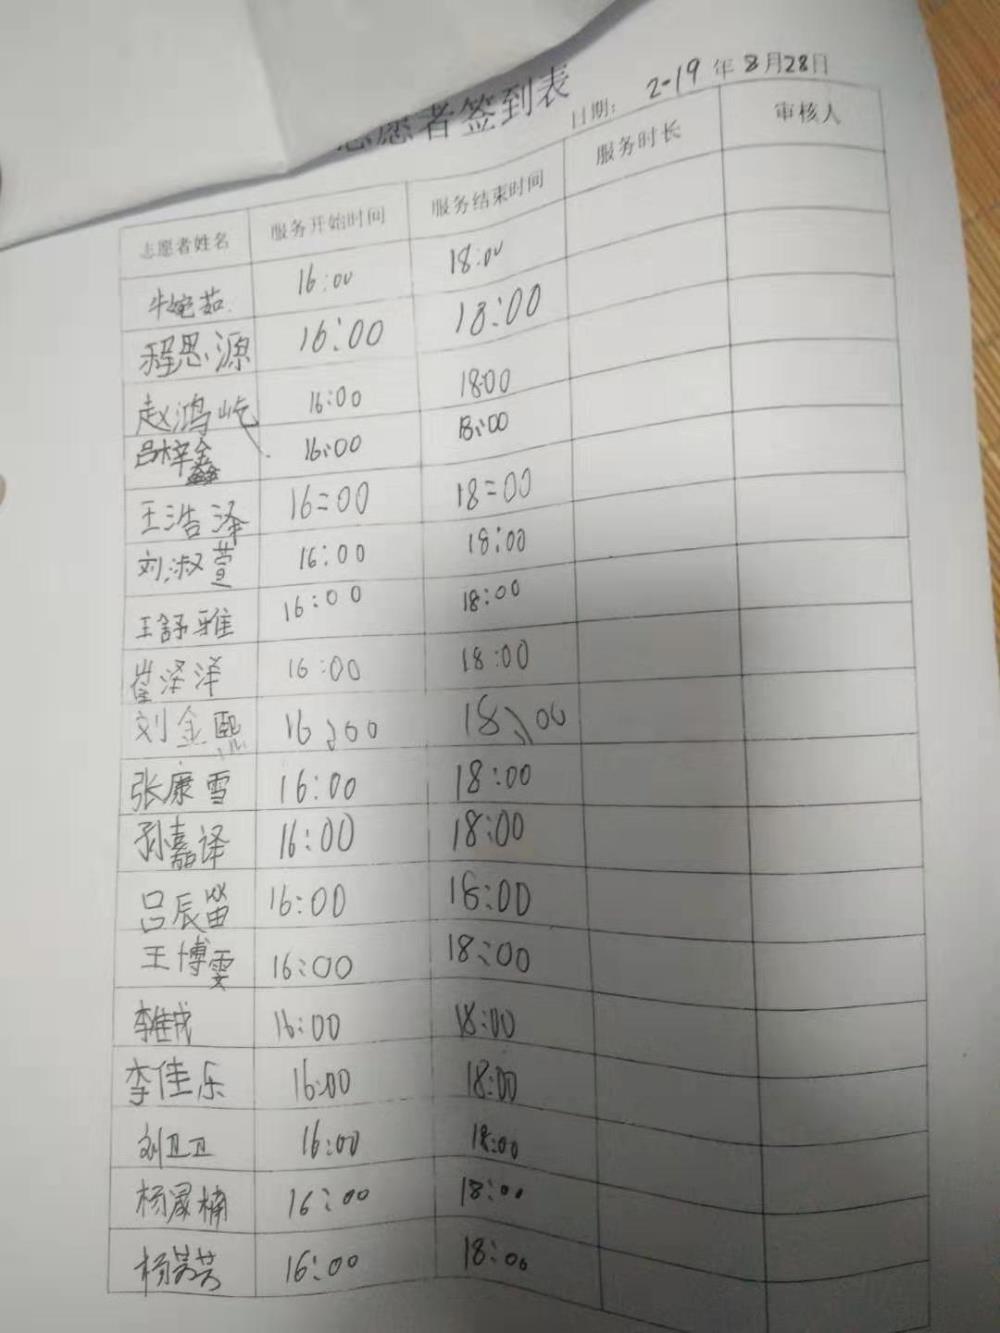 愿者签到表
日期: 2019年8月28日
志愿者姓名 服务开始时间 服务结束时间 服务时长 审核人
牛婉茹 16:00 18:00
程思源 16:00 18:00
赵鸿屹 16:00 18:00
吕梓鑫 16:00 18:00
王浩泽 16:00 18:00
刘淑萱 16:00 18:00
王舒雅 16:00 18:00
崔泽洋 16:00 18:00
刘金熙 16:00 18:00
张康雪 16:00 18:00
孙嘉译 16:00 18:00
吕辰 16:00 18:00
王博雯 16:00 18:00
李 16:00 18:00
李佳乐 16:00 18:00
刘卫卫 16:00 18:00
杨 楠 16:00 18:00
杨芳芳 16:00 18:00